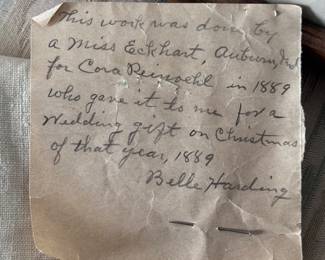 This work was done by
a Miss Eckhart, Auburn, Ind
for Cora Reinoehl in 1889
who gave it to me for a
Wedding gift on Christmas
of that year, 1889
Belle Harding